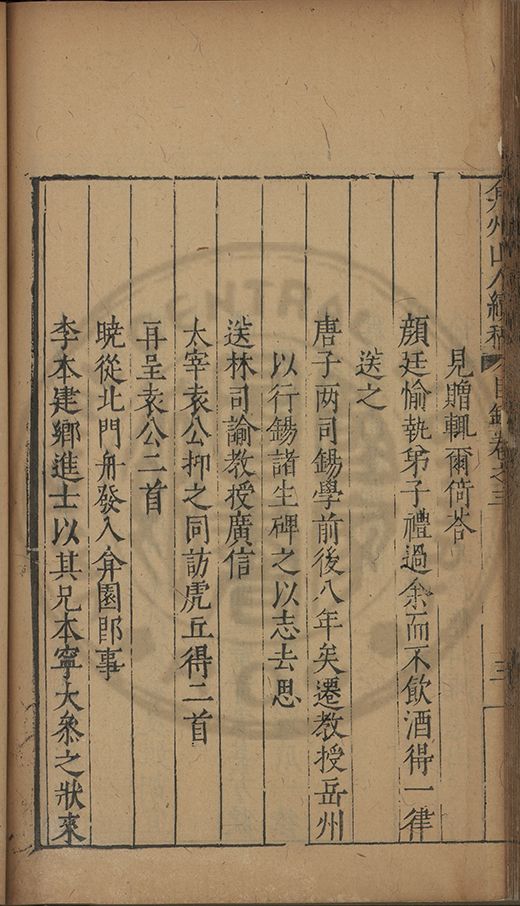 弇州山人續稿 目錄卷之三 三
見贈輒爾倚荅
顔廷愉執弟子禮過余而不飲酒得一律
送之
唐子两司錫學前後八年矣遷教授岳州
以行錫諸生碑之以志去思
送林司諭教授廣信
太宰袁公抑之同訪虎丘得二首
再呈袁公二首
曉從北門舟發入弇園即事
李本建鄉進士以其兄本寧大叅之狀來